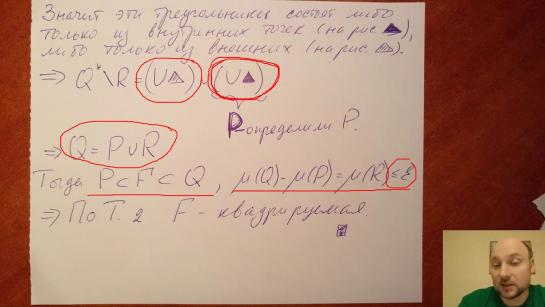 Значит эти треугольники состоят либо
только из внутринних точек (на рис. ▲),
либо только из внешних (на рис. △).
⇒ Q*\R = (∪△) ∪ (∪▲)
P определили P.
⇒ Q = P∪R
Тогда P ⊂ F ⊂ Q, μ(Q)-μ(P) = μ(R) ≤ ε
⇒ По Т. 2 F - квадрируемая.